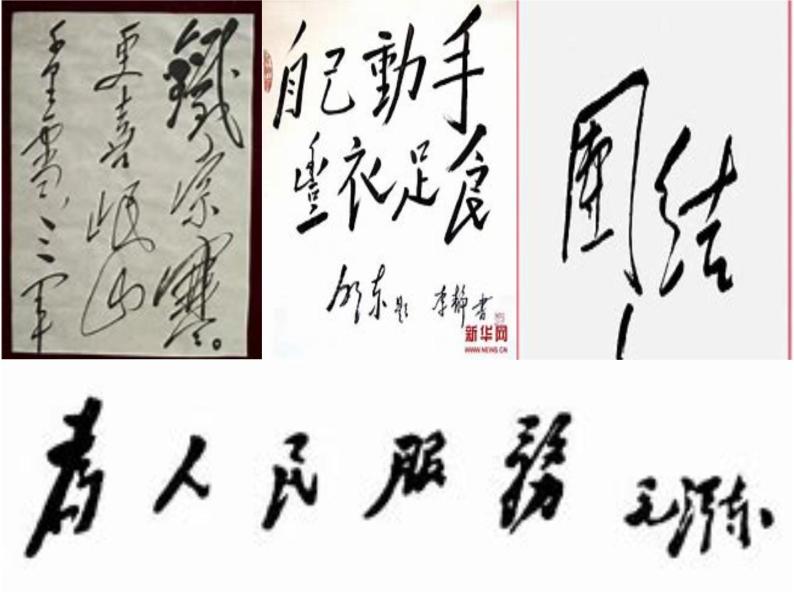 鐵索寒。
更喜岷山
千里雪,三軍
自己動手
豐衣足食
澤东題 李靜書
新华网
WWW.NEWS.CN
團結
為人民服務 毛澤东